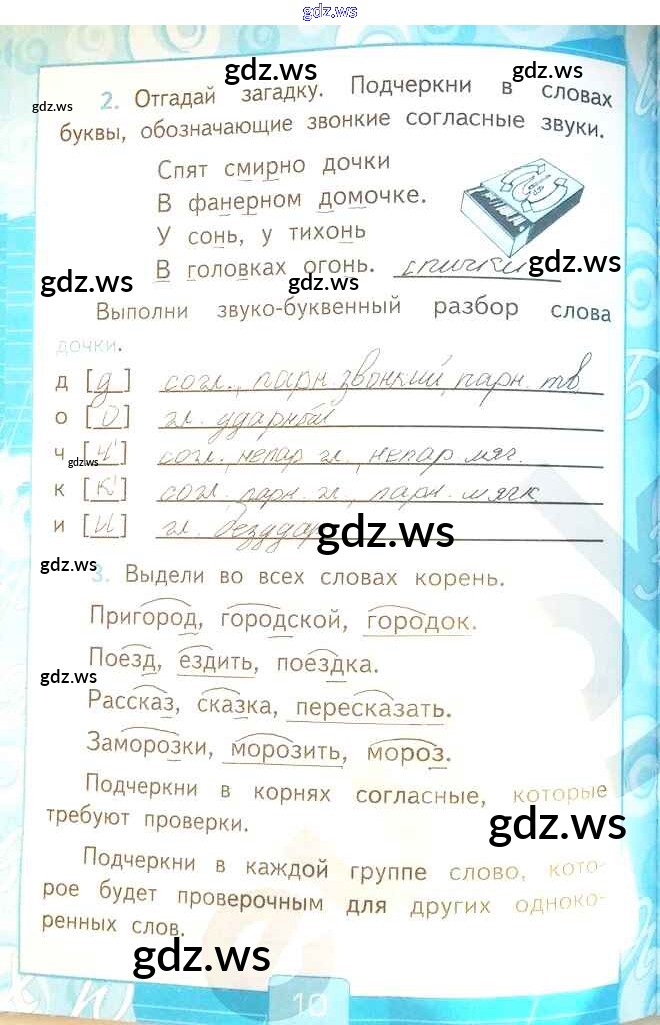 gdz.ws
gdz.ws gdz.ws
gdz.ws
2. Отгадай загадку. Подчеркни в словах
буквы, обозначающие звонкие согласные звуки.
Спят смирно дочки
В фанерном домочке.
У сонь, у тихонь
В головках огонь. спички
gdz.ws gdz.ws
Выполни звуко-буквенный разбор слова
дочки.
д [д] согл., парн. звонкий, парн. тв.
о [о] гл. ударный
ч [ч'] согл., непар гл., непар мяг.
gdz.ws
к [к'] согл. парн. гл., парн. мягк.
и [и] гл. безудар
gdz.ws
gdz.ws
3. Выдели во всех словах корень.
Пригород, городской, городок.
Поезд, ездить, поездка.
gdz.ws
Рассказ, сказка, пересказать.
Заморозки, морозить, мороз.
Подчеркни в корнях согласные, которые
требуют проверки.
gdz.ws
Подчеркни в каждой группе слово, кото-
рое будет проверочным для других одноко-
ренных слов.
gdz.ws
10